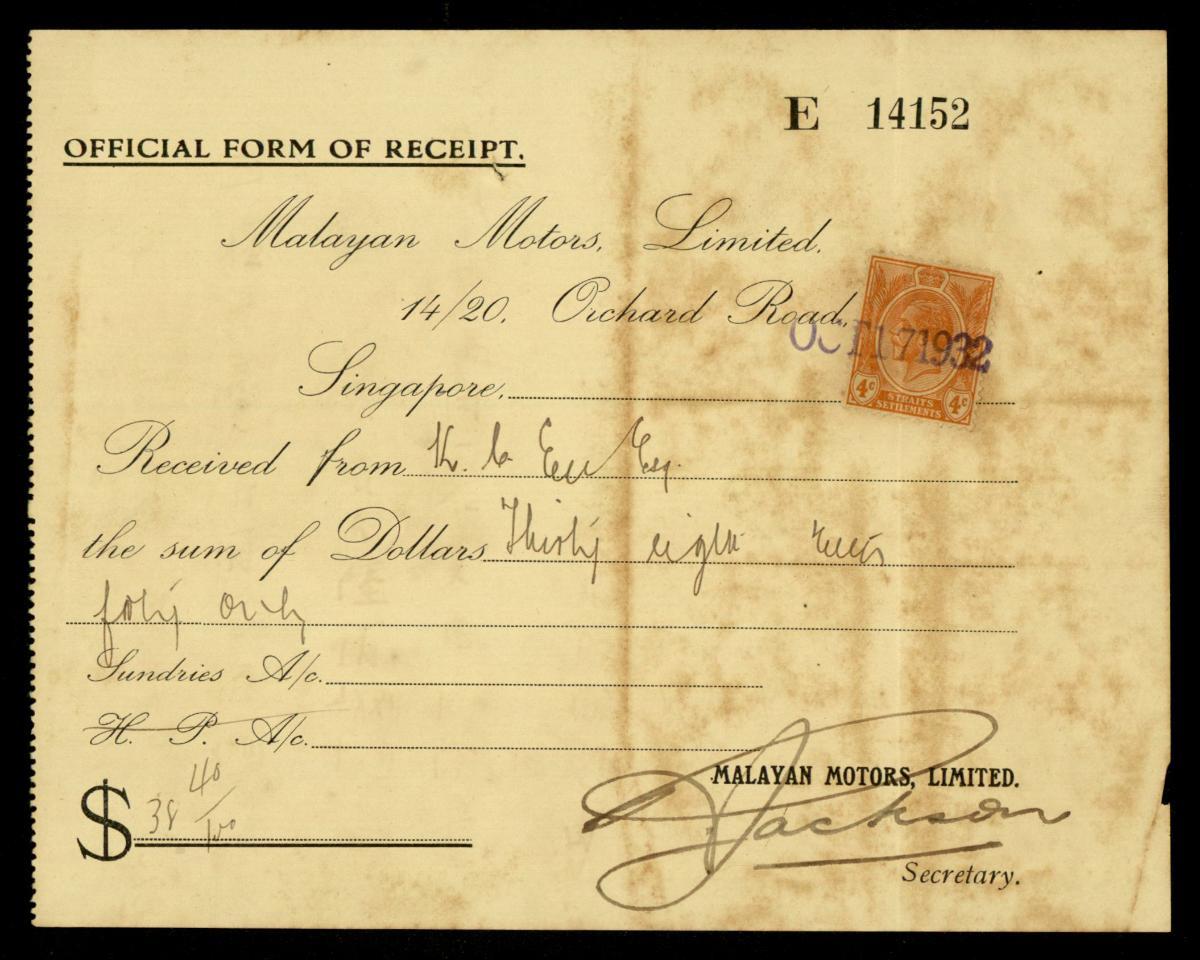 E 14152
OFFICIAL FORM OF RECEIPT.
Malayan Motors, Limited.
14/20, Orchard Road,
OCT 17 1932
Singapore,
4c STRAITS SETTLEMENTS 4c
Received from K. C. Eu Esq.
the sum of Dollars Thirty eight cents
forty only
Sundries A/c.
H. P. A/c.
$ 38 40/100
MALAYAN MOTORS, LIMITED.
Jackson
Secretary.